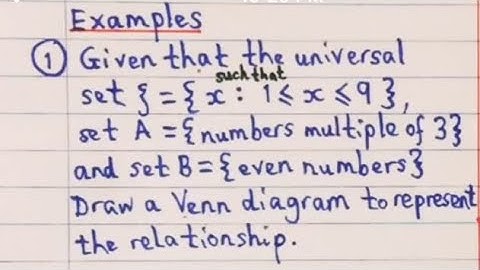 Examples
① Given that the universal
such that
set ξ = { x : 1 ≤ x ≤ 9 },
set A = { numbers multiple of 3}
and set B = { even numbers}
Draw a Venn diagram to represent
the relationship.